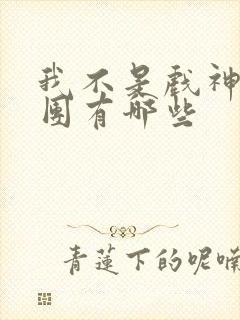 我不是戲神
團有哪些
青蓮下的呢喃